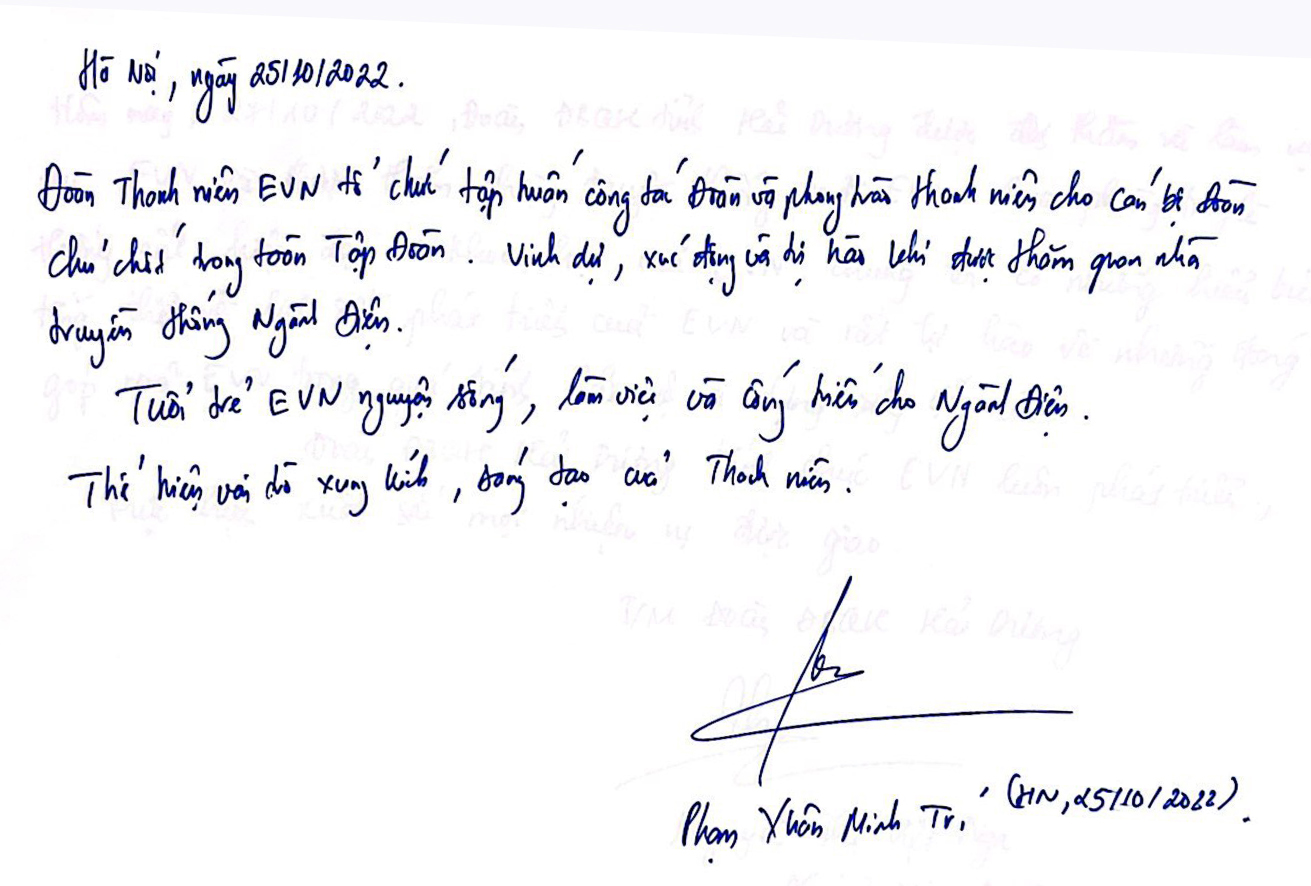 Hà Nội, ngày 25/10/2022.
Đoàn Thanh niên EVN tổ chức tập huấn công tác Đoàn và phong trào thanh niên cho cán bộ Đoàn
chủ chốt trong toàn Tập Đoàn. Vinh dự, xúc động và tự hào khi được thăm quan nhà
truyền thống Ngành Điện.
Tuổi trẻ EVN nguyện sống, làm việc và cống hiến cho Ngành Điện.
Thể hiện vai trò xung kích, sáng tạo của Thanh niên.
Phạm Xuân Minh Trí (HN, 25/10/2022).